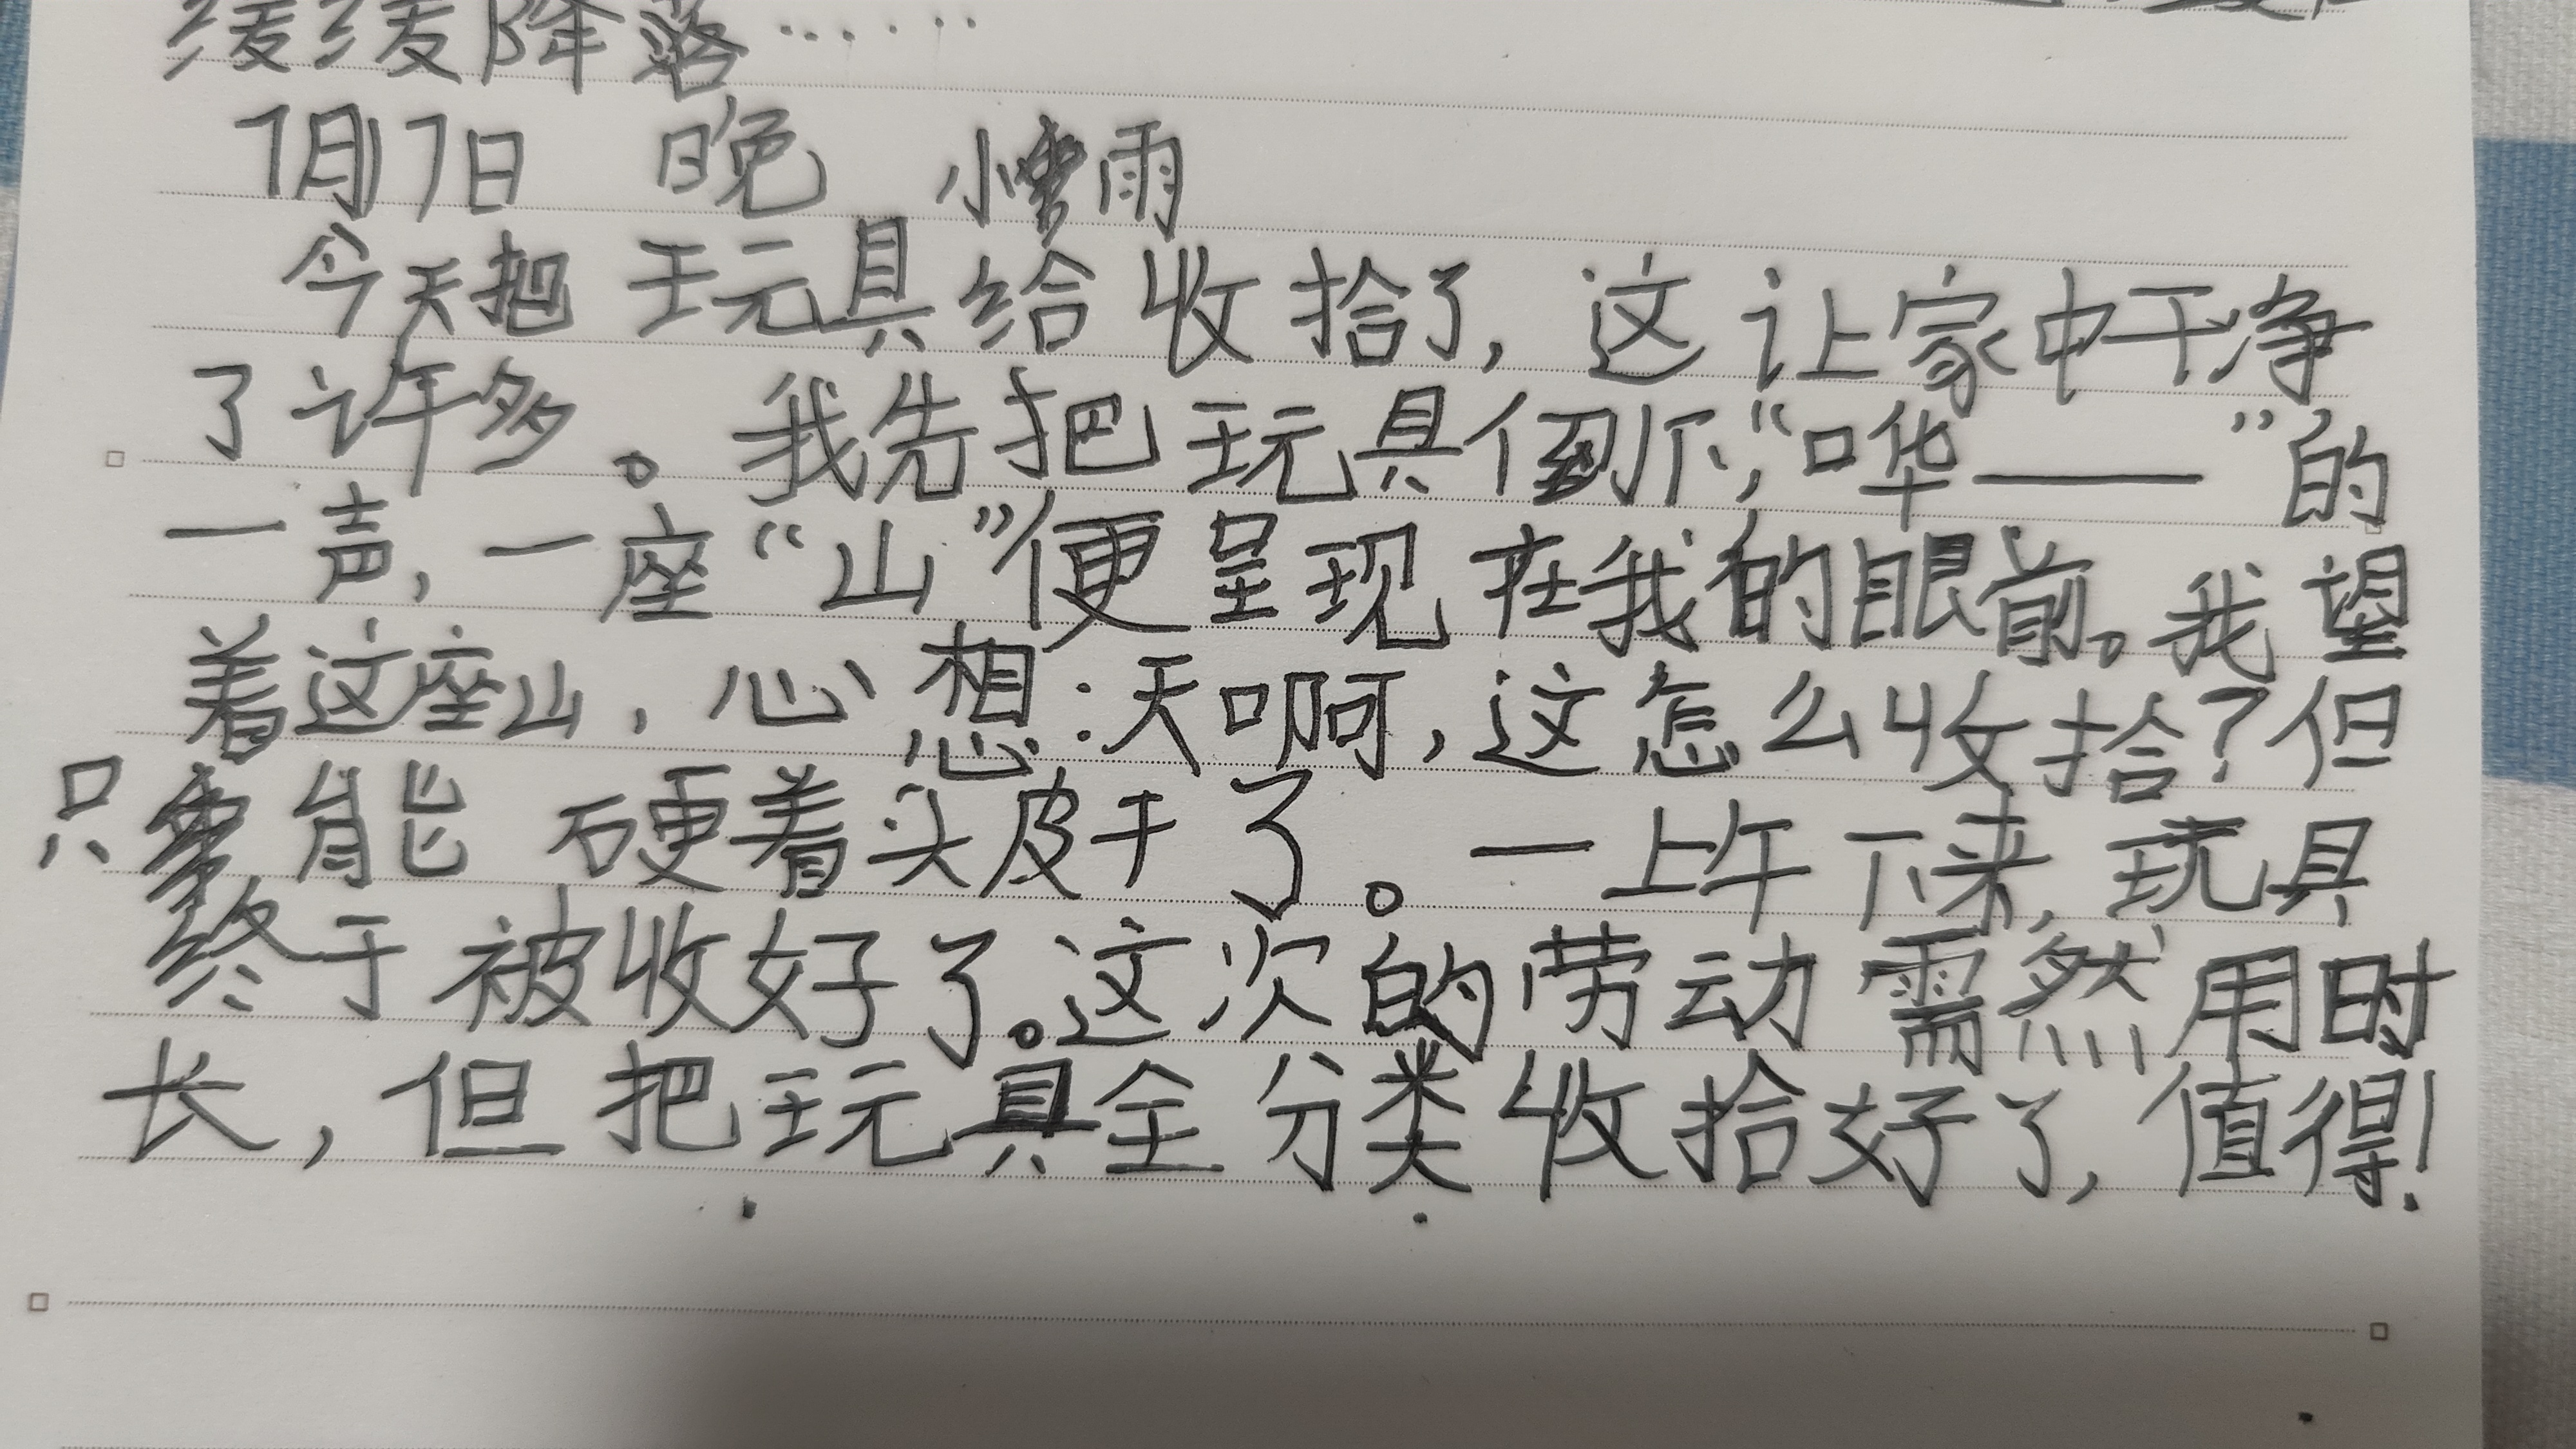 缓缓降落……
7月7日 晚 小雨
今天把玩具给收拾了，这让家中干净
了许多。我先把玩具倒下，“哗——”的
一声，一座“山”便呈现在我的眼前。我望
着这座山，心想：天啊，这怎么收拾？但
只能硬着头皮干了。一上午下来，玩具
终于被收好了。这次的劳动需然用时
长，但把玩具全分类收拾好了，值得！